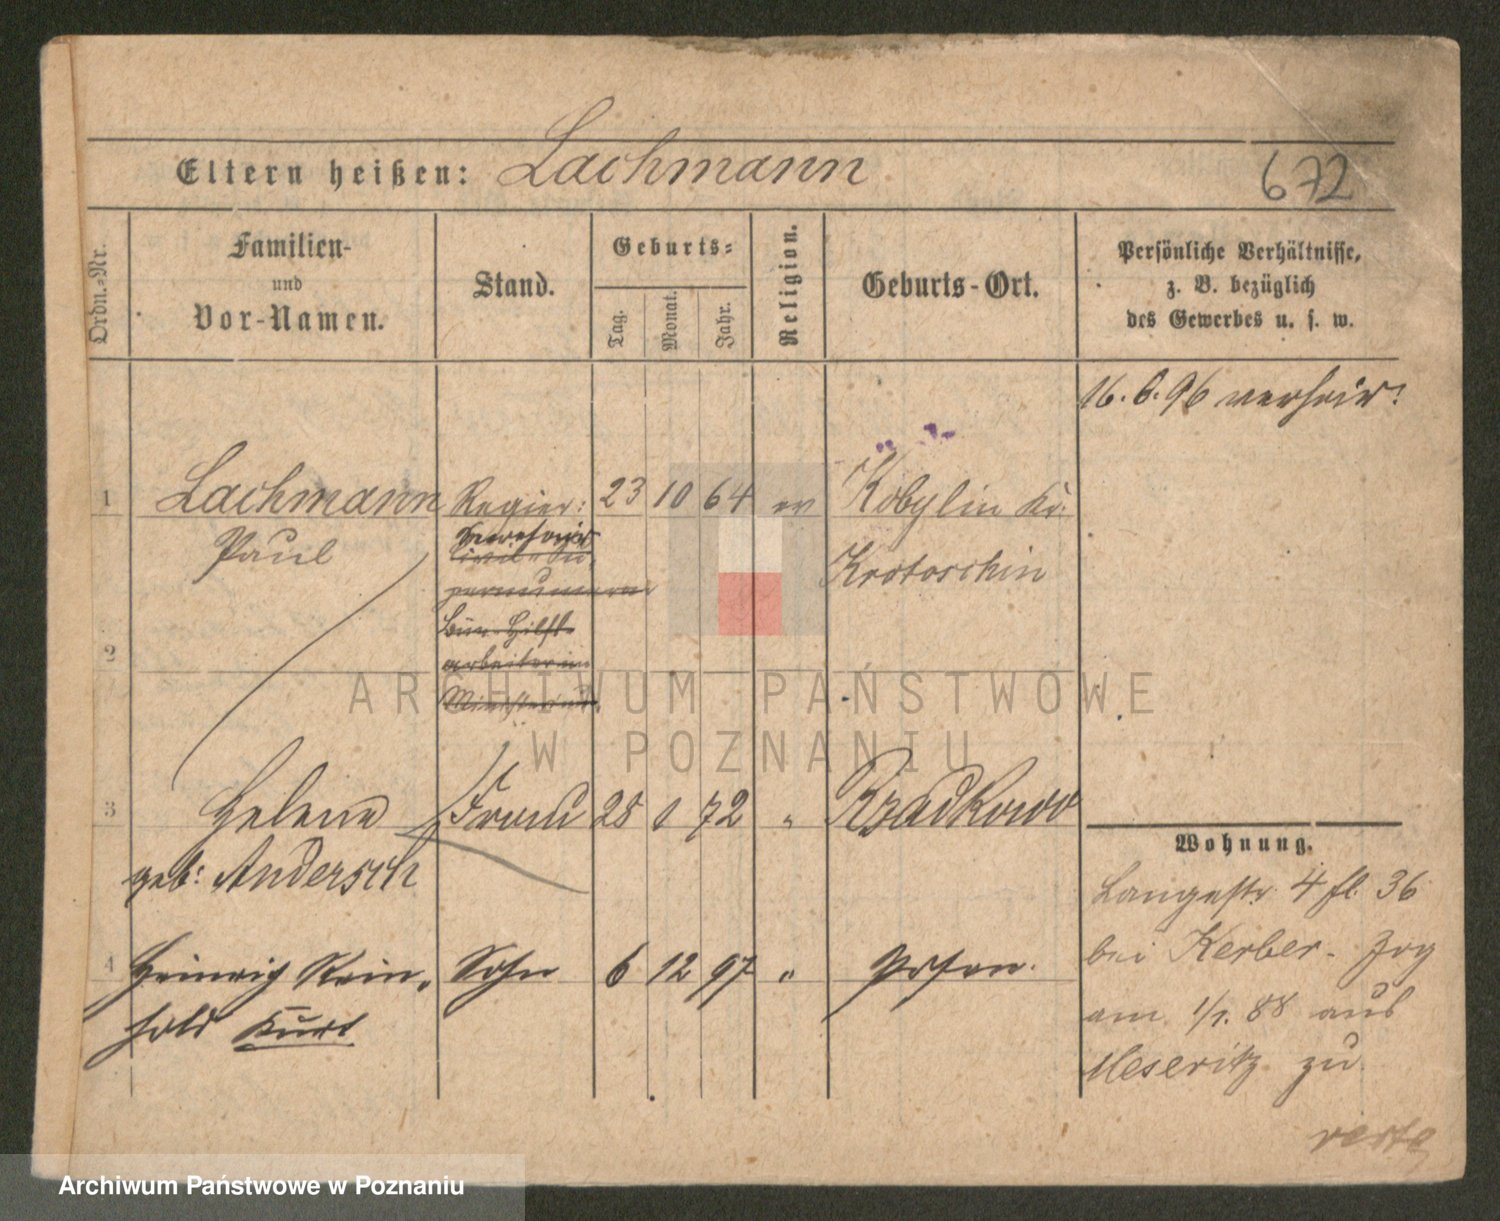 Eltern heißen: Lachmann
672
Ordn.-Nr.
Familien-
und
Vor-Namen.
Stand.
Geburts-
Tag.
Monat.
Jahr.
Religion.
Geburts-Ort.
Persönliche Verhältnisse,
z. B. bezüglich
des Gewerbes u. s. w.
16. 6. 96 verheir:
1 Lachmann Regier: 23 10 64 ev Kobylin Kr:
Paul Secretair Krotoschin
Civil-Su
pernumerar
Bür. Hilfs-
arbeiter im
Ministerium
2
3 Helene Frau 28 72 " Rzadkowo
geb: Andersch
4 Heinrich Rein- Sohn 6 12 97 " Posen.
hold Kurt
Wohnung.
Langestr. 4 fl. 36
bei Kerber. Zog
am 1/7. 88 aus
Meseritz zu
verte
ARCHIWUM PAŃSTWOWE
W POZNANIU
Archiwum Państwowe w Poznaniu